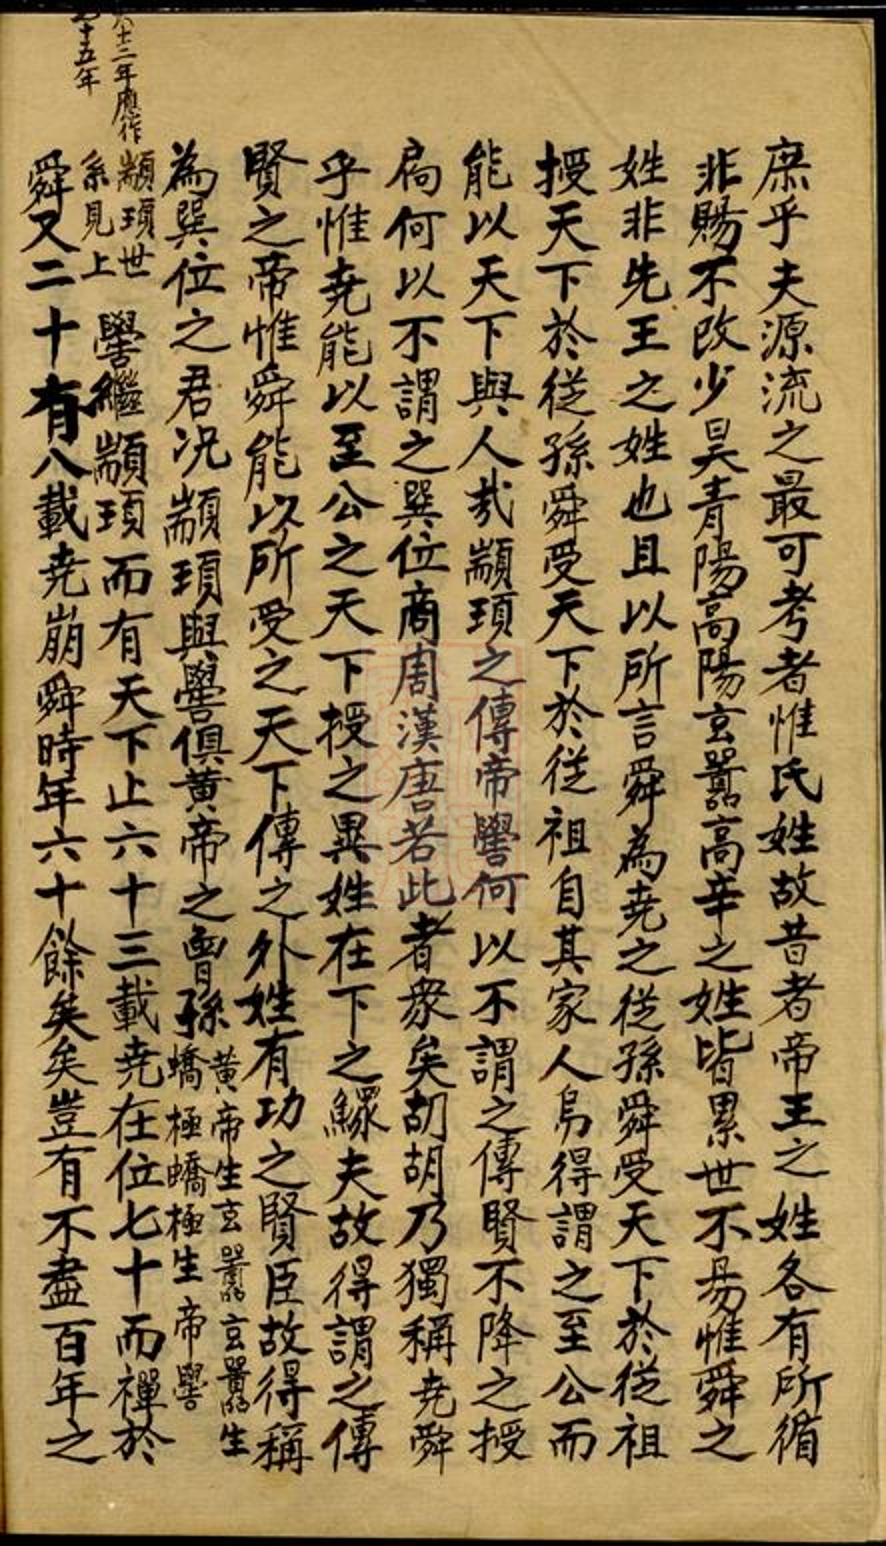 庶乎夫源流之最可考者惟氏姓故昔者帝王之姓各有所循
非賜不改少昊青陽高陽玄囂高辛之姓皆累世不易惟舜之
姓非先王之姓也且以所言舜為堯之從孫舜受天下於從祖
授天下於從孫舜受天下於從祖自其家人烏得謂之至公而
能以天下與人哉顓頊之傳帝嚳何以不謂之傳賢不降之授
扃何以不謂之巽位商周漢唐若此者衆矣胡胡乃獨稱堯舜
乎惟堯能以至公之天下授之異姓在下之鰥夫故得謂之傳
賢之帝惟舜能以所受之天下傳之外姓有功之賢臣故得稱
為巽位之君况顓頊與嚳俱黄帝之曾孫
黄帝生玄囂玄囂生
蟜極蟜極生帝嚳
顓頊世
系見上
嚳繼顓頊而有天下止六十三載堯在位七十而禪於
舜又二十有八載堯崩舜時年六十餘矣矣豈有不盡百年之
十三年應作
十五年